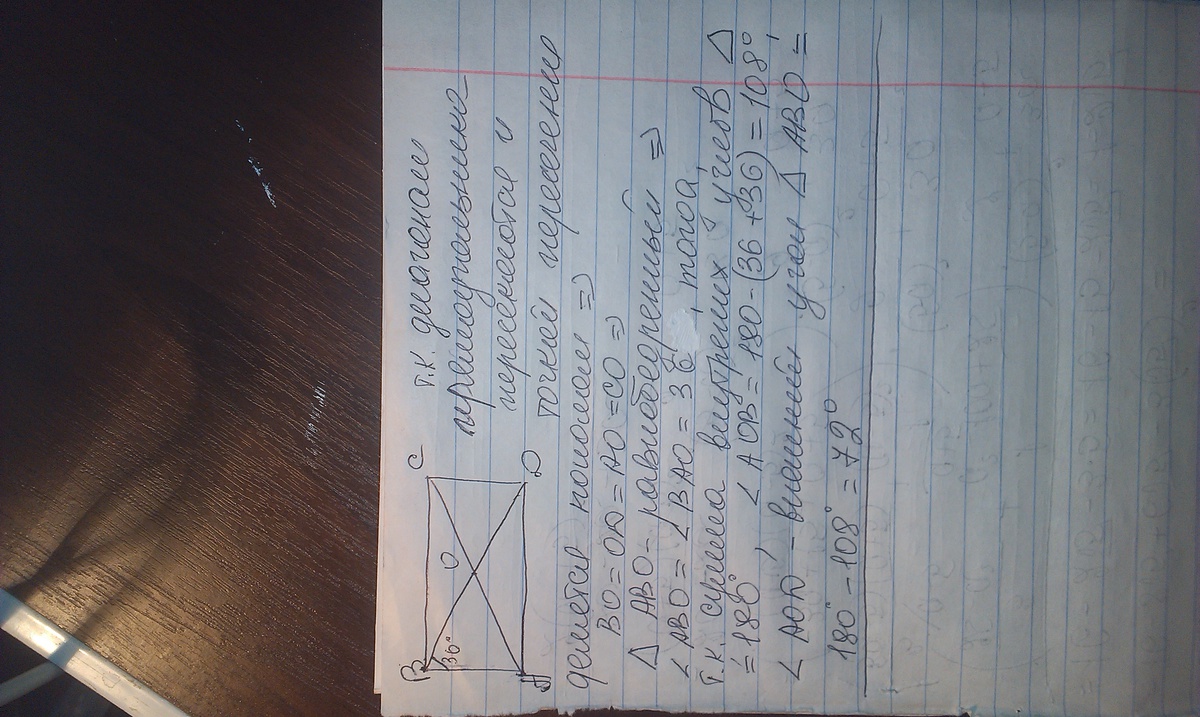 B C
36° O
A D
т.к. диагонали
прямоугольника
пересекаются и
точкой пересечения
делятся пополам =>
BO = OD = AO = CO =>
Δ ABO - равнобедренный =>
∠ ABO = ∠ BAO = 36, тогда,
т.к. сумма внутрених углов Δ
= 180°, ∠ AOB = 180 - (36 + 36) = 108°,
∠ AOD - внешний угол Δ ABO =
180° - 108° = 72°